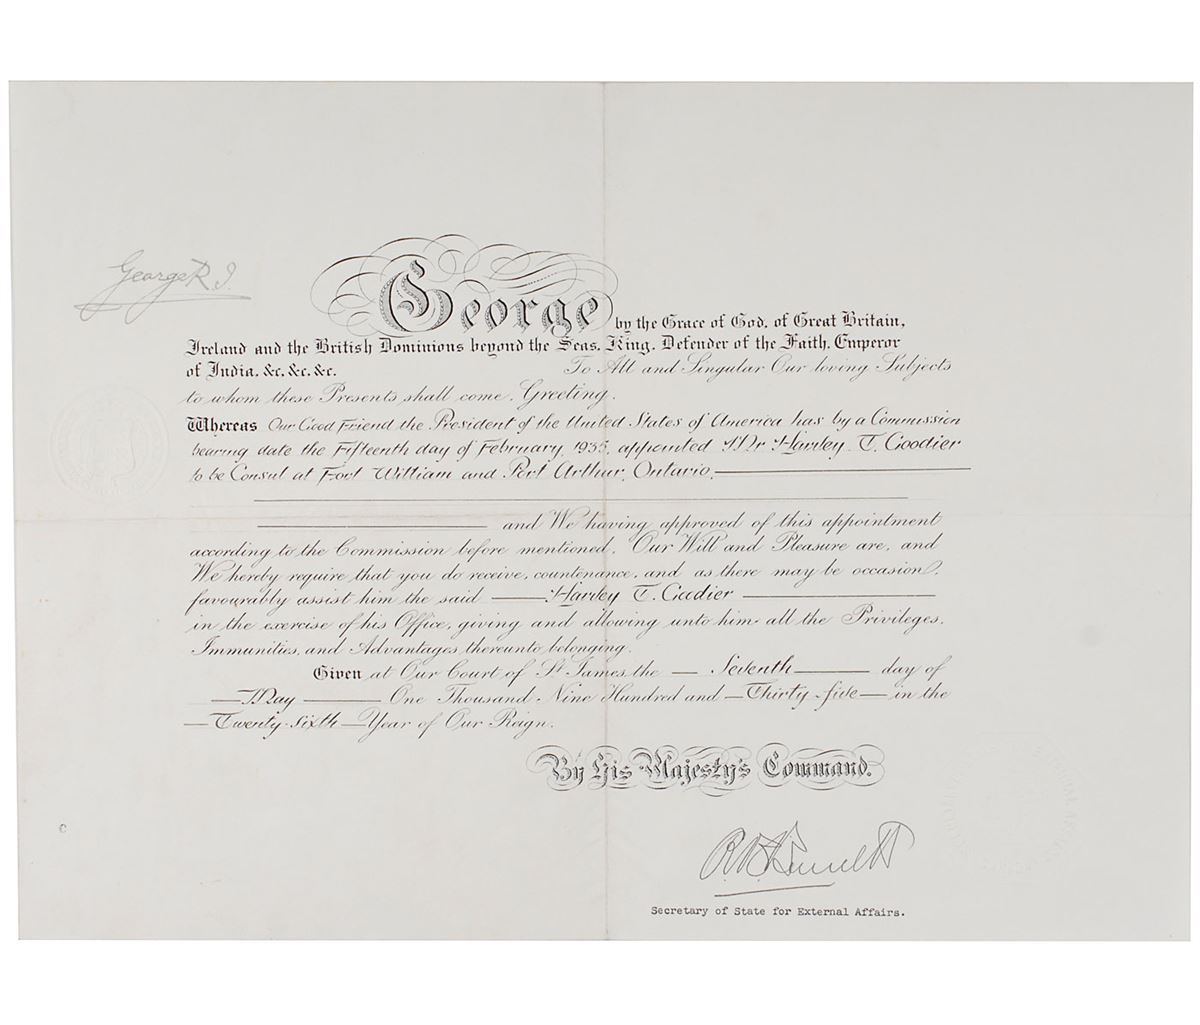 George R. I.
George by the Grace of God, of Great Britain,
Ireland and the British Dominions beyond the Seas, King, Defender of the Faith, Emperor
of India, &c, &c, &c. To All and Singular Our loving Subjects
to whom these Presents shall come, Greeting.
Whereas Our Good Friend the President of the United States of America has by a Commission
bearing date the Fifteenth day of February, 1935, appointed Mr Harvey T. Goodier
to be Consul at Fort William and Port Arthur, Ontario,
and We having approved of this appointment
according to the Commission before mentioned, Our Will and Pleasure are, and
We hereby require that you do receive, countenance, and as there may be occasion,
favourably assist him the said Harvey T. Goodier
in the exercise of his Office, giving and allowing unto him all the Privileges,
Immunities, and Advantages thereunto belonging.
Given at Our Court of St James, the Seventh day of
May One Thousand Nine Hundred and Thirty-five in the
Twenty-sixth Year of Our Reign.
By His Majesty's Command.
R B Bennett
Secretary of State for External Affairs.